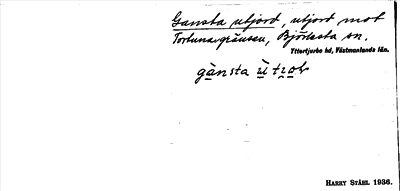 Gansta utjord, utjord mot
Tortunagränsen, Björksta sn.
Yttertjurbo hd, Västmanlands län.
gànsta ù
HARRY STÅHL 1936.